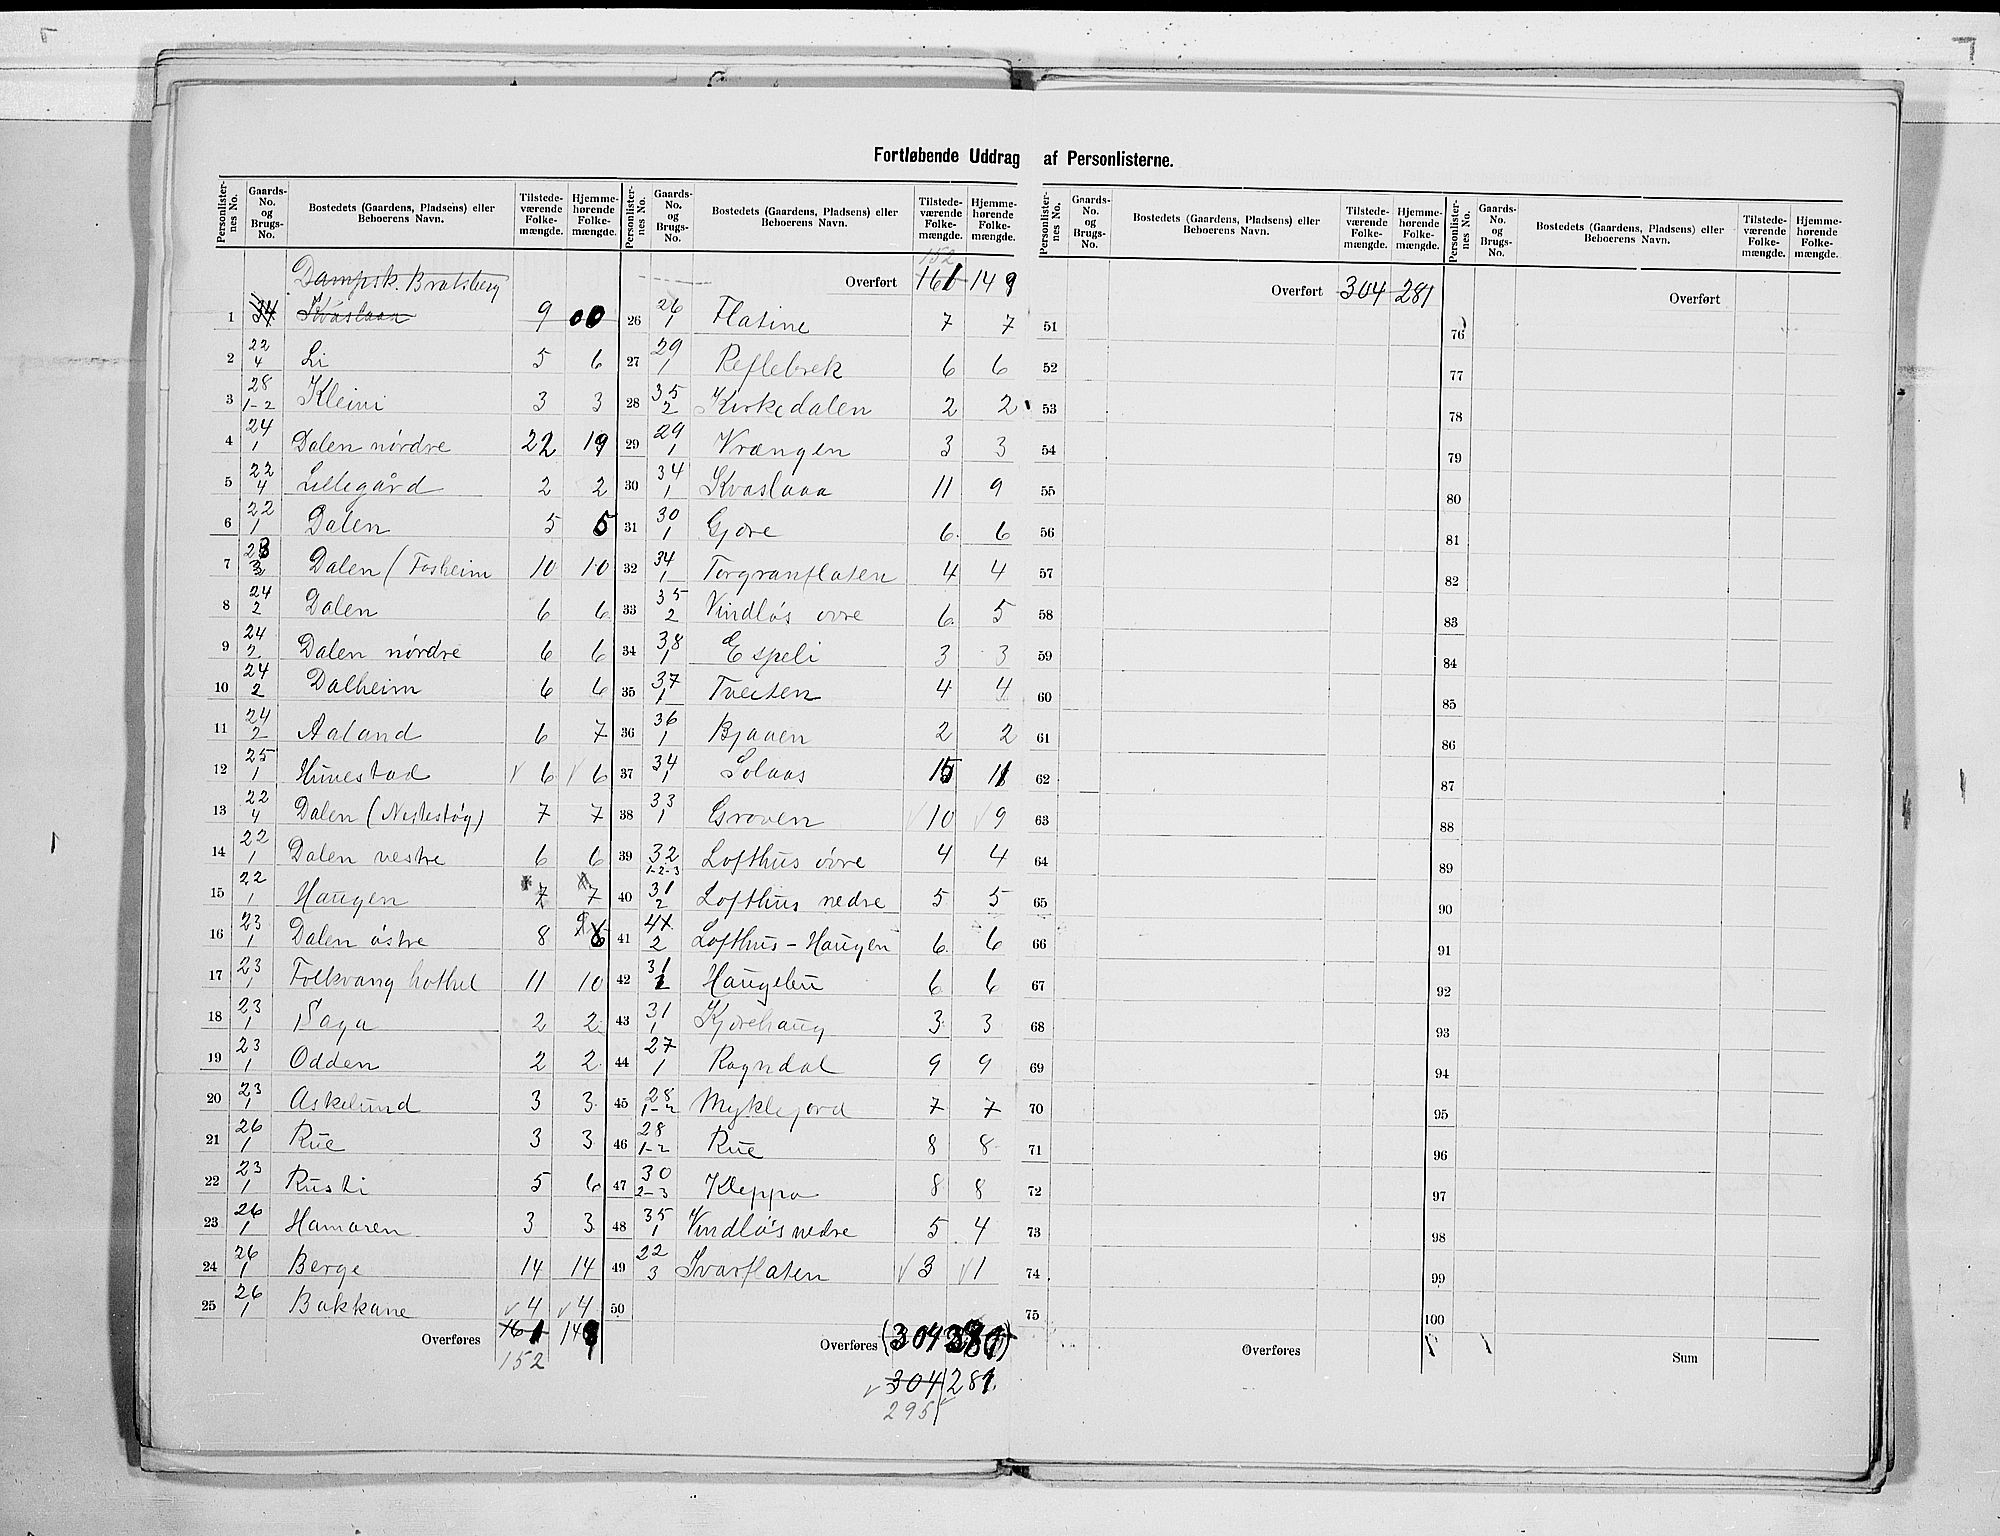 Fortløbende Uddrag af Personlisterne.
Personlister-nes No. Gaards-No. og Brugs-No. Bostedets (Gaardens, Pladsens) eller Beboerens Navn. Tilstede-værende Folke-mængde. Hjemme-hørende Folke-mængde.
Dampsk. Bratsberg
1 34 Kvaslaaa 9 00
2 22/4 Li 5 6
3 28/1-2 Kleivi 3 3
4 24/1 Dalen nordre 22 19
5 22/4 Lillegård 2 2
6 22/1 Dalen 5 5
7 23/3 Dalen (Fosheim 10 10
8 24/2 Dalen 6 6
9 24/2 Dalen nordre 6 6
10 24/2 Dalheim 6 6
11 24/2 Aaland 6 7
12 25/1 Hunestad 6 6
13 22/4 Dalen (Nestestøg) 7 7
14 22/1 Dalen vestre 6 6
15 22/1 Haugen 7 7
16 23/1 Dalen østre 8
17 23/1 Folkvang hothel 11 10
18 23/1 Saga 2 2
19 23/1 Odden 2 2
20 23/1 Askelund 3 3
21 26/1 Rue 3 3
22 23/1 Rusti 5 6
23 26/1 Hamaren 3 3
24 26/1 Berge 14 14
25 26/1 Bakkane 4 4
Overføres 161 149
152
Personlister-nes No. Gaards-No. og Brugs-No. Bostedets (Gaardens, Pladsens) eller Beboerens Navn. Tilstede-værende Folke-mængde. Hjemme-hørende Folke-mængde.
152
Overført 161 149
26 26/1 Flatine 7 7
27 29/1 Reflebrek 6 6
28 35/2 Kirkedalen 2 2
29 29/1 Vrængen 3 3
30 34/1 Kvaslaaa 11 9
31 30/1 Gjøre 6 6
32 34/1 Torgranflaten 4 4
33 35/2 Vindløs øvre 6 5
34 38/1 Espeli 3 3
35 37/1 Tveiten 4 4
36 36/1 Bjaaen 2 2
37 34/1 Solaas 15 11
38 33/1 Groven 10 9
39 32/1-2-3 Lofthus øvre 4 4
40 31/2 Lofthus nedre 5 5
41 2 Lofthus-Haugen 6 6
42 31 Haugelui 6 6
43 31/1 Kjørehaug 3 3
44 27/1 Rogndal 9 9
45 28/1-2 Myklejord 7 7
46 28/1-2 Rue 8 8
47 30/2-3 Kleppo 8 8
48 35/1 Vindløs nedre 5 4
49 22/3 Ivarflaten 3 1
50
Overføres (304 281)
304 281
295
Personlister-nes No. Gaards-No. og Brugs-No. Bostedets (Gaardens, Pladsens) eller Beboerens Navn. Tilstede-værende Folke-mængde. Hjemme-hørende Folke-mængde.
Overført 304 281
51
52
53
54
55
56
57
58
59
60
61
62
63
64
65
66
67
68
69
70
71
72
73
74
75
Overføres
Personlister-nes No. Gaards-No. og Brugs-No. Bostedets (Gaardens, Pladsens) eller Beboerens Navn. Tilstede-værende Folke-mængde. Hjemme-hørende Folke-mængde.
Overført
76
77
78
79
80
81
82
83
84
85
86
87
88
89
90
91
92
93
94
95
96
97
98
99
100
Sum